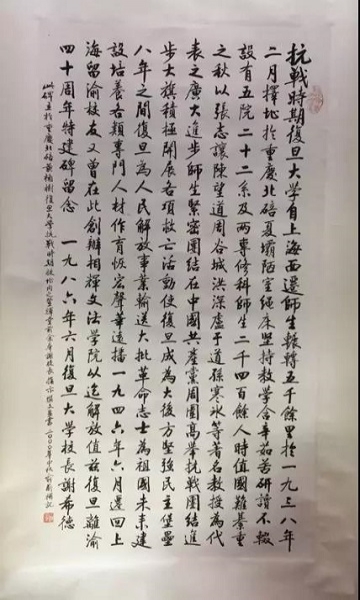 抗戰時期復旦大學自上海西遷師生輾轉五千餘里於一九三八年
二月擇址於重慶北碚夏壩陋室繩床堅持教學含辛茹苦研讀不輟
設有五院二十二系及兩專修科師生二千四百餘人時值國難攀重
之秋以張志讓陳望道周谷城洪深盧于道孫寒冰等著名教授為代
表之廣大進步師生緊密團結在中國共產黨周圍高舉抗戰團結進
步大旗積極開展各項救亡活動使復旦成為大後方堅強民主堡壘
八年之間復旦為人民解放事業輸送大批革命志士為祖國未來建
設培養各類專門人材作育恢宏聲華遠播一九四六年六月遷回上
海留渝校友又曾在此創辦相輝文法學院以迄解放值茲復旦離渝
四十周年特建碑留念 一九八六年六月復旦大學校長謝希德
此碑立於重慶北碚黃桷樹復旦大學抗戰時期校址內
二〇〇〇年